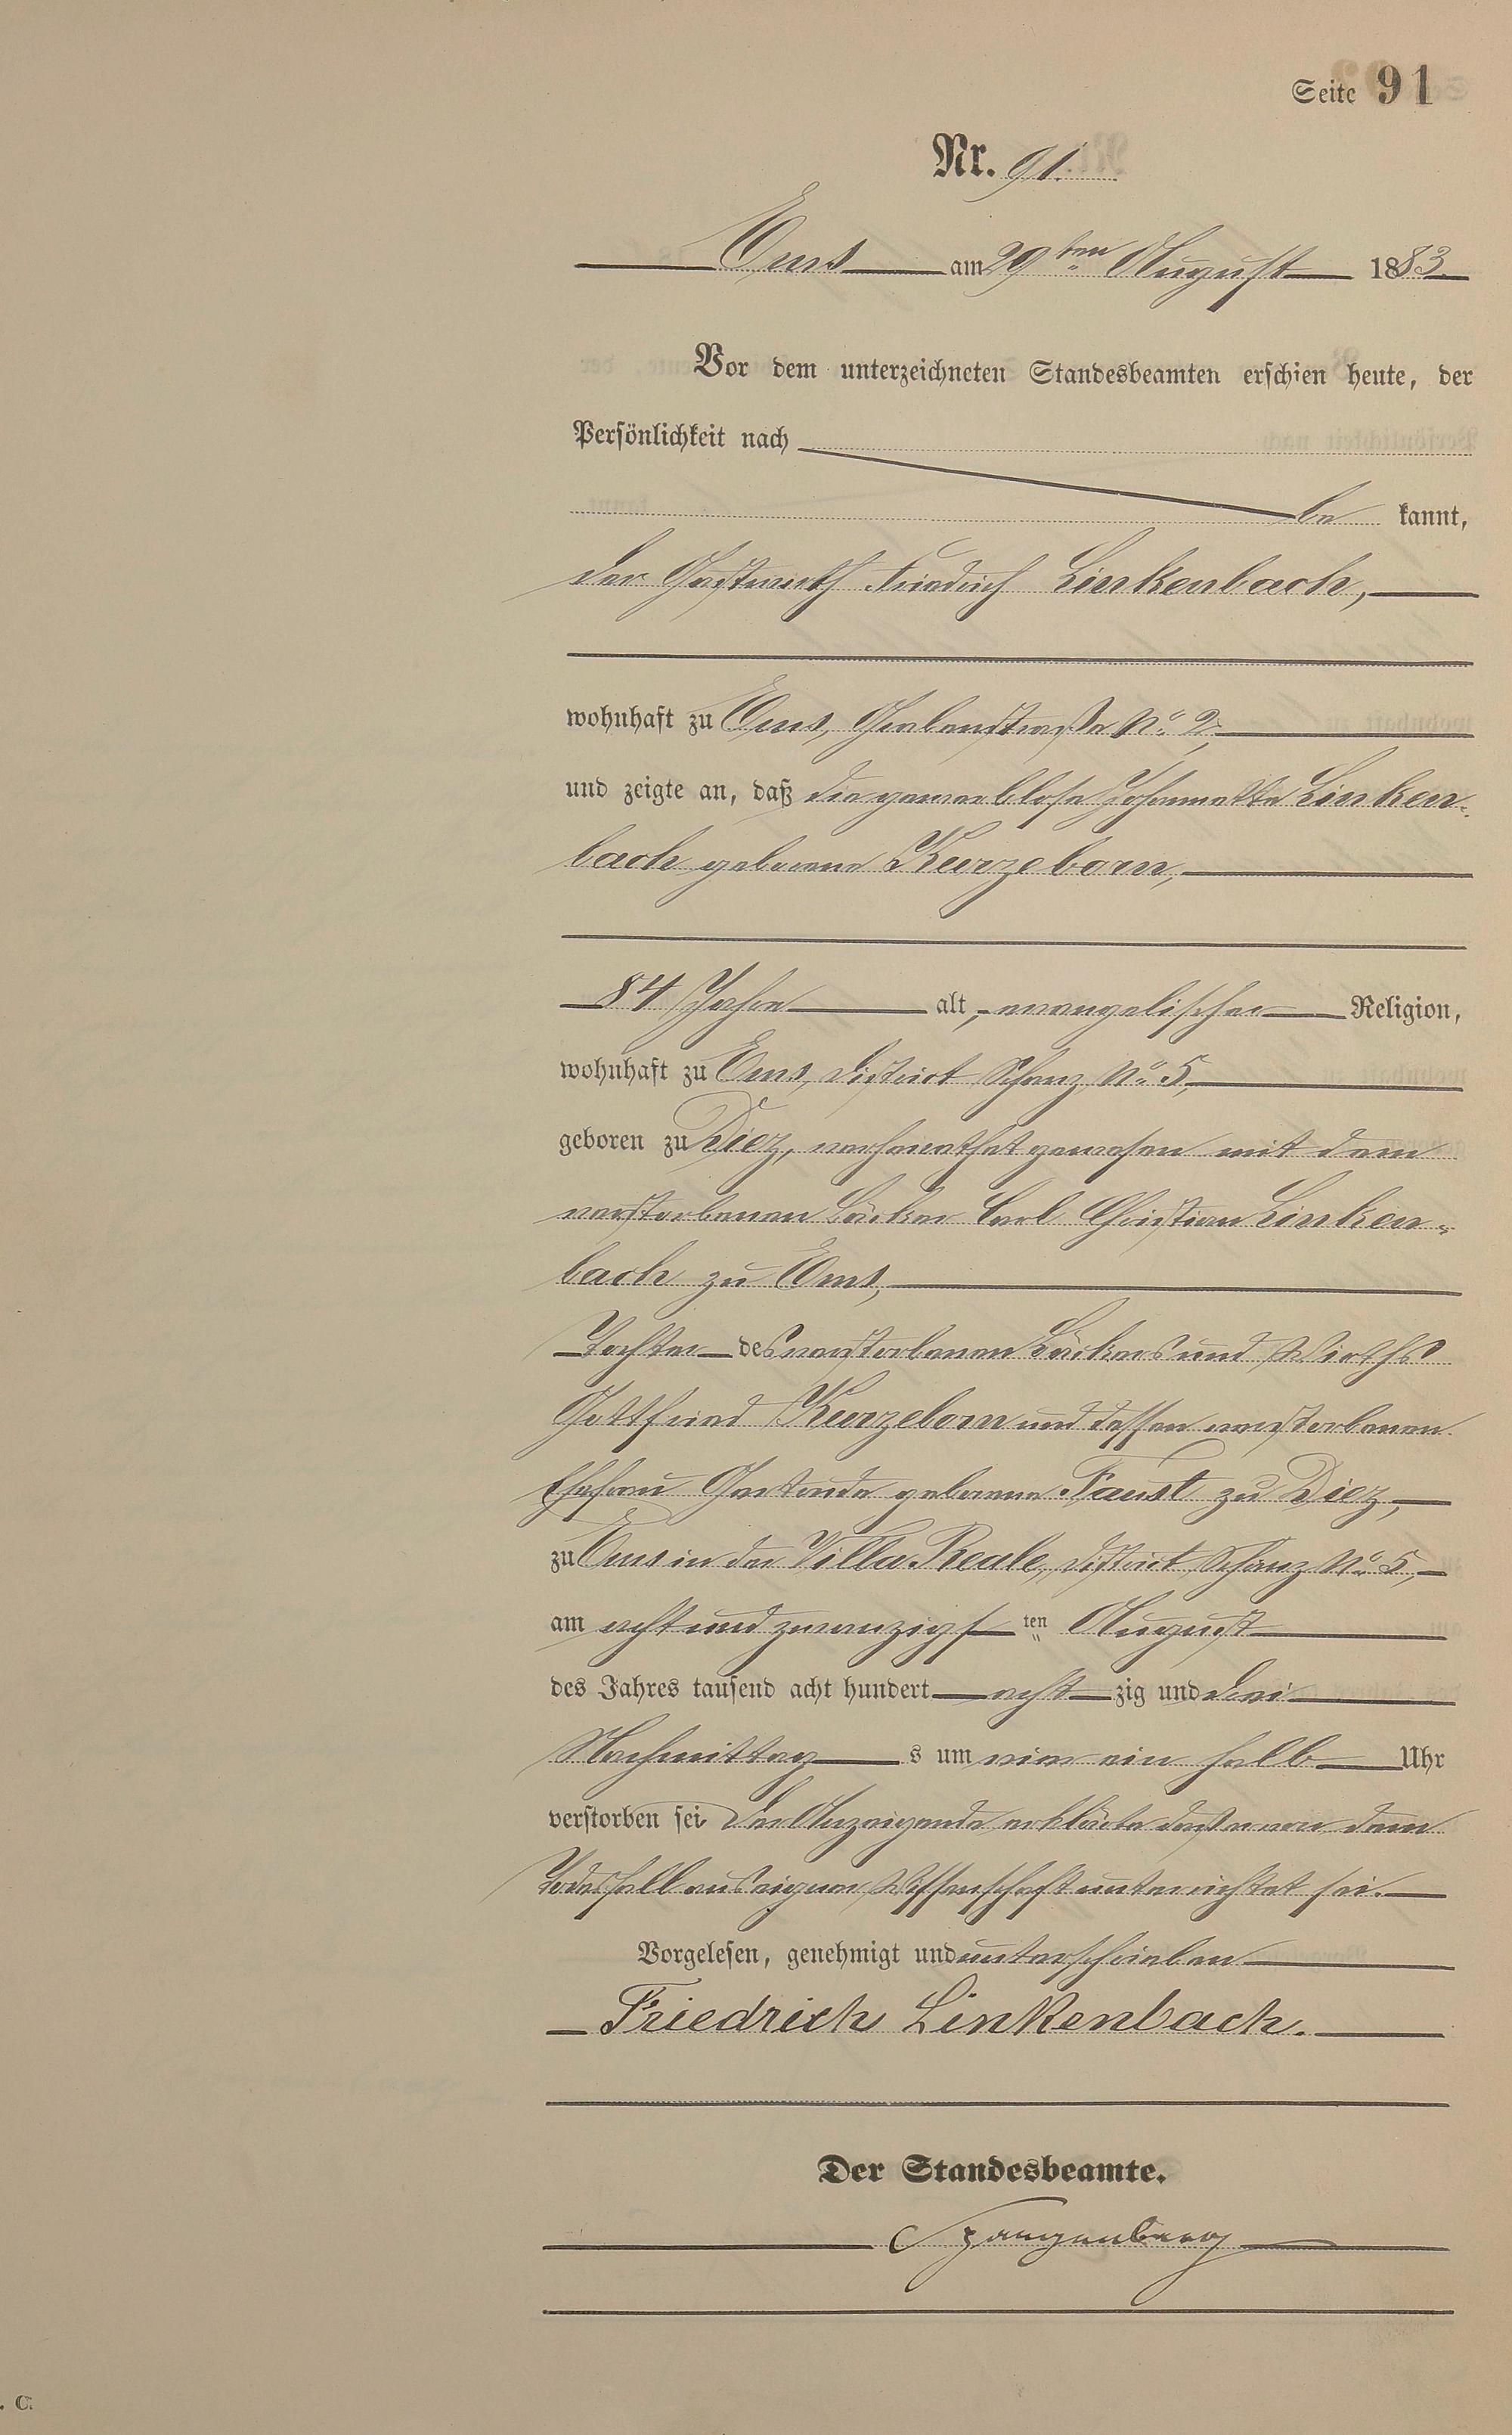 Seite 91
Nr. 91.
Ems am 29ten August 1883
Vor dem unterzeichneten Standesbeamten erschien heute, der
Persönlichkeit nach
be kannt,
der Gastwirth Friedrich Linkenbach,
wohnhaft zu Ems, Grabenstraße No. 2,
und zeigte an, daß die gewerblose Johannette Linken-
bach geborene Kurzeborn,
84 Jahre alt, evangelischer Religion,
wohnhaft zu Ems, District Schanz No. 5,
geboren zu Diez, verheirathet gewesen mit dem
verstorbenen Bäcker Carl Christian Linken-
bach zu Ems,
Tochter des verstorbenen Bäckers und Wirths
Gottfried Kurzeborn und dessen verstorbenen
Ehefrau Gertrude geborene Faust zu Diez,
zu Ems in der Villa Reale, District Schanz No. 5,
am acht und zwanzigsten August
des Jahres tausend acht hundert achtzig und drei
Nachmittags um vier ein halb Uhr
verstorben sei Der Anzeigende erklärte daß er von dem
Todesfall aus eigner Wissenschaft unterrichtet sei.
Vorgelesen, genehmigt und unterschrieben
Friedrich Linkenbach.
Der Standesbeamte.
Spangenberg
. C.